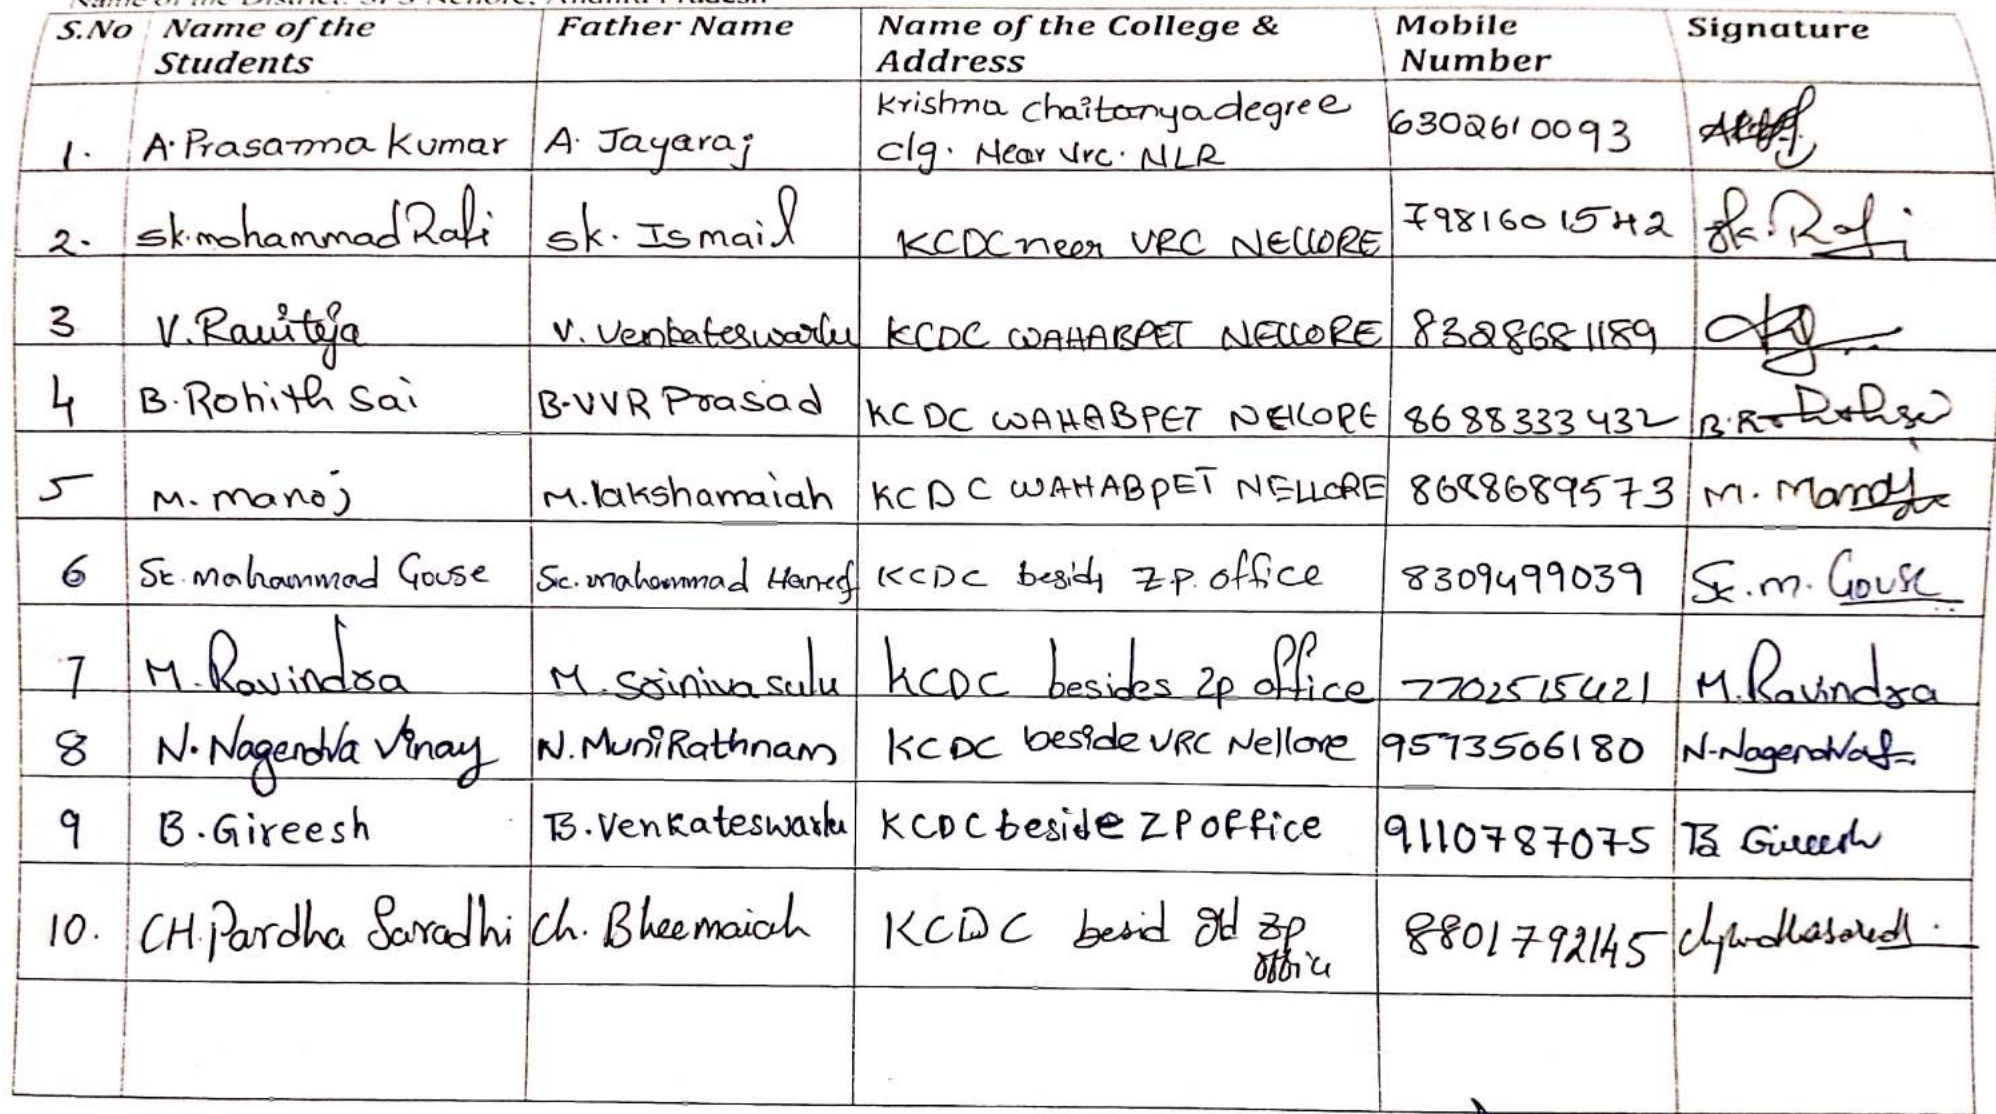 Name of the District: SPS Nellore, Andhra Pradesh
S.No Name of the Students Father Name Name of the College & Address Mobile Number Signature
1. A. Prasanna Kumar A. Jayaraj Krishna Chaitanya degree clg. Near Vrc. NLR 6302610093
2. Sk. mohammad Rafi Sk. Ismail KCDC neer VRC NELLORE 7981601542 Sk. Rafi
3 V. Raviteja V. Venkateswarlu KCDC WAHABPET NELLORE 8328681189
4 B. Rohith Sai B. VVR Prasad KCDC WAHABPET NELLORE 8688333432
5 M. manoj M. lakshamaiah KCDC WAHABPET NELLORE 8688689573 M. Manoj
6 Sk. mahammad Gouse Sk. mahammad Haneef KCDC beside Z.P. office 8309499039 Sk. m. Gouse
7 M. Ravindra M. Srinivasulu KCDC besides zp office 7702515421 M. Ravindra
8 N. Nagendra Vinay N. Muni Rathnam KCDC beside VRC Nellore 9573506180 N. Nagendra
9 B. Gireesh B. Venkateswarlu KCDC beside ZP office 9110787075 B Gireesh
10. CH. Pardha Saradhi Ch. Bheemaiah KCDC besid old zp office 8801792145